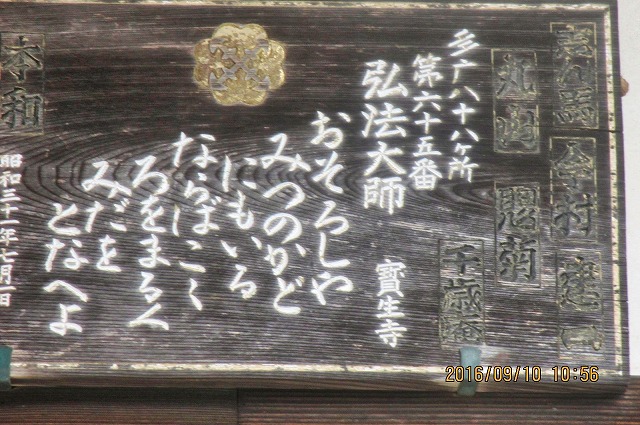 今村
丸山
千歳
多广八十八ヶ所
第六十五番
弘法大師
寳生寺
おそろしや
みつのかど
にもいる
ならばこゝ
ろをまるく
みだを
となへよ
本和
昭和三十一年七月一日
2016/09/10 10:56